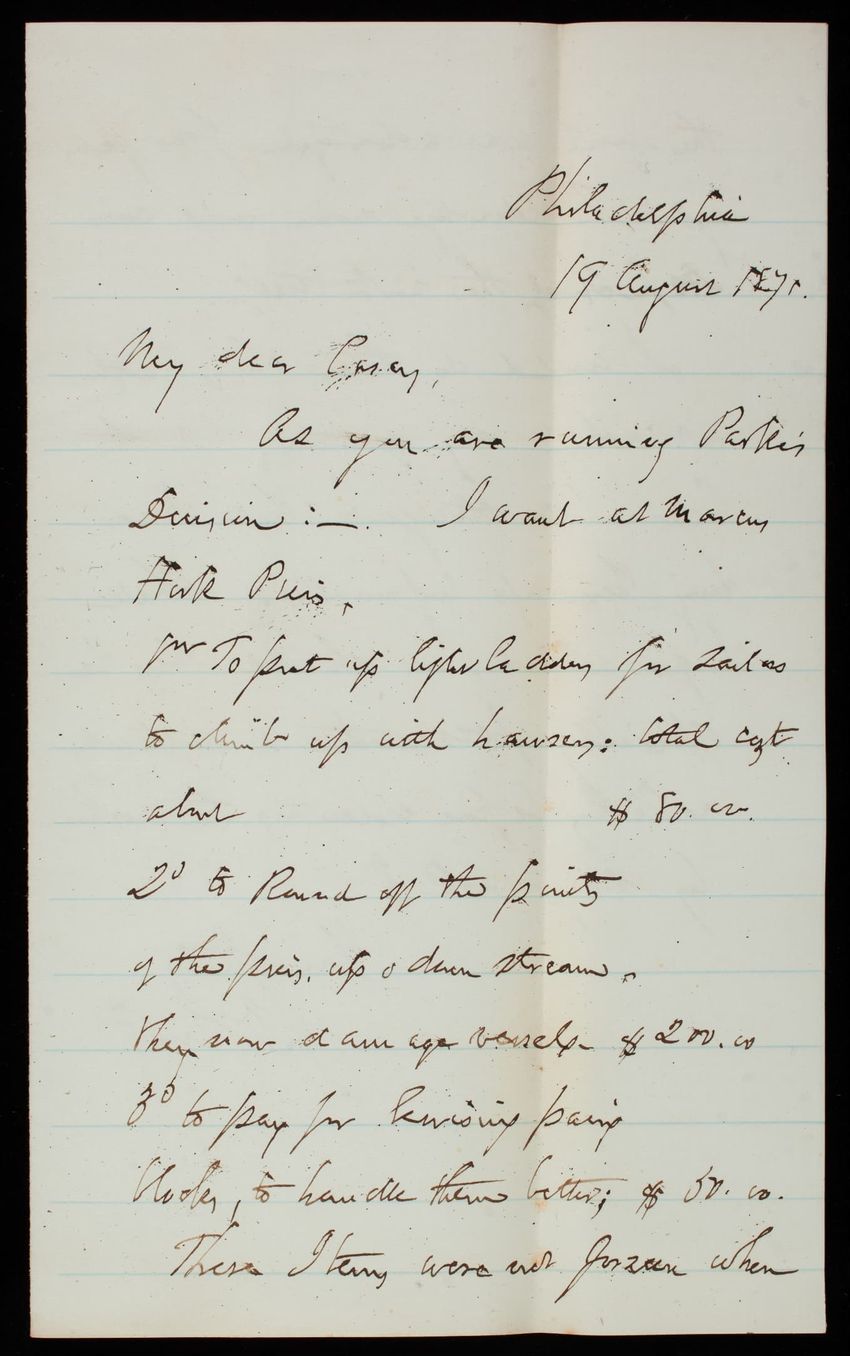 Philadelphia
19 August 1871.
My dear Casey,
As you are running Park's
Division :—. I want at Marcus
Hook Piers,
1st To put up light ladders for sailors
to climb up with hawsers: total cost
about $ 80.00.
2d to Round off the points
of the piers, up & down stream,
they now damage vessels— $ 200.00
3d to pay for lewising paving
blocks, to handle them better; $ 50.00.
These Items were not forseen when